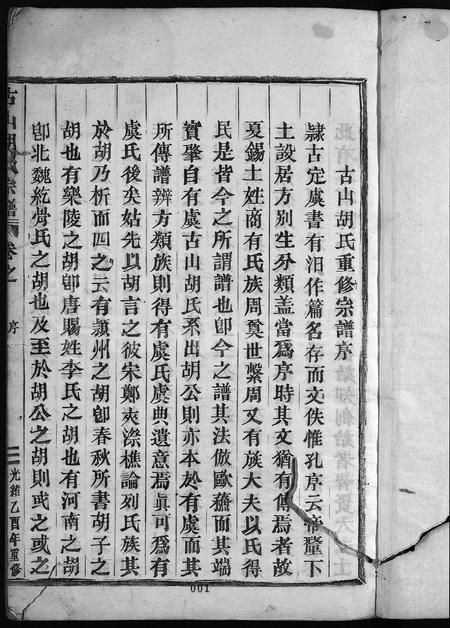 古山胡氏重修宗譜序
隸古定虞書有汨作篇名存而文佚惟孔序云帝釐下
土設居方别生分類蓋當爲序時其文猶有傳焉者故
夏錫土姓商有氏族周奠世繫周又有族大夫以氏得
民是皆今之所謂譜也卽今之譜其法倣歐蘇而其端
實肇自有虞古山胡氏系出胡公則亦本於有虞而其
所傳譜辨方類族則得有虞氏虞典遺意焉眞可爲有
虞氏後矣姑先以胡言之彼宋鄭夾漈樵論列氏族其
於胡乃析而四之云有潁州之胡卽春秋所書胡子之
胡也有欒陵之胡卽唐賜姓李氏之胡也有河南之胡
卽北魏紇骨氏之胡也及至於胡公之胡則或之或之
古山胡氏宗譜
卷之一
序
一
光緒乙酉年重修
001